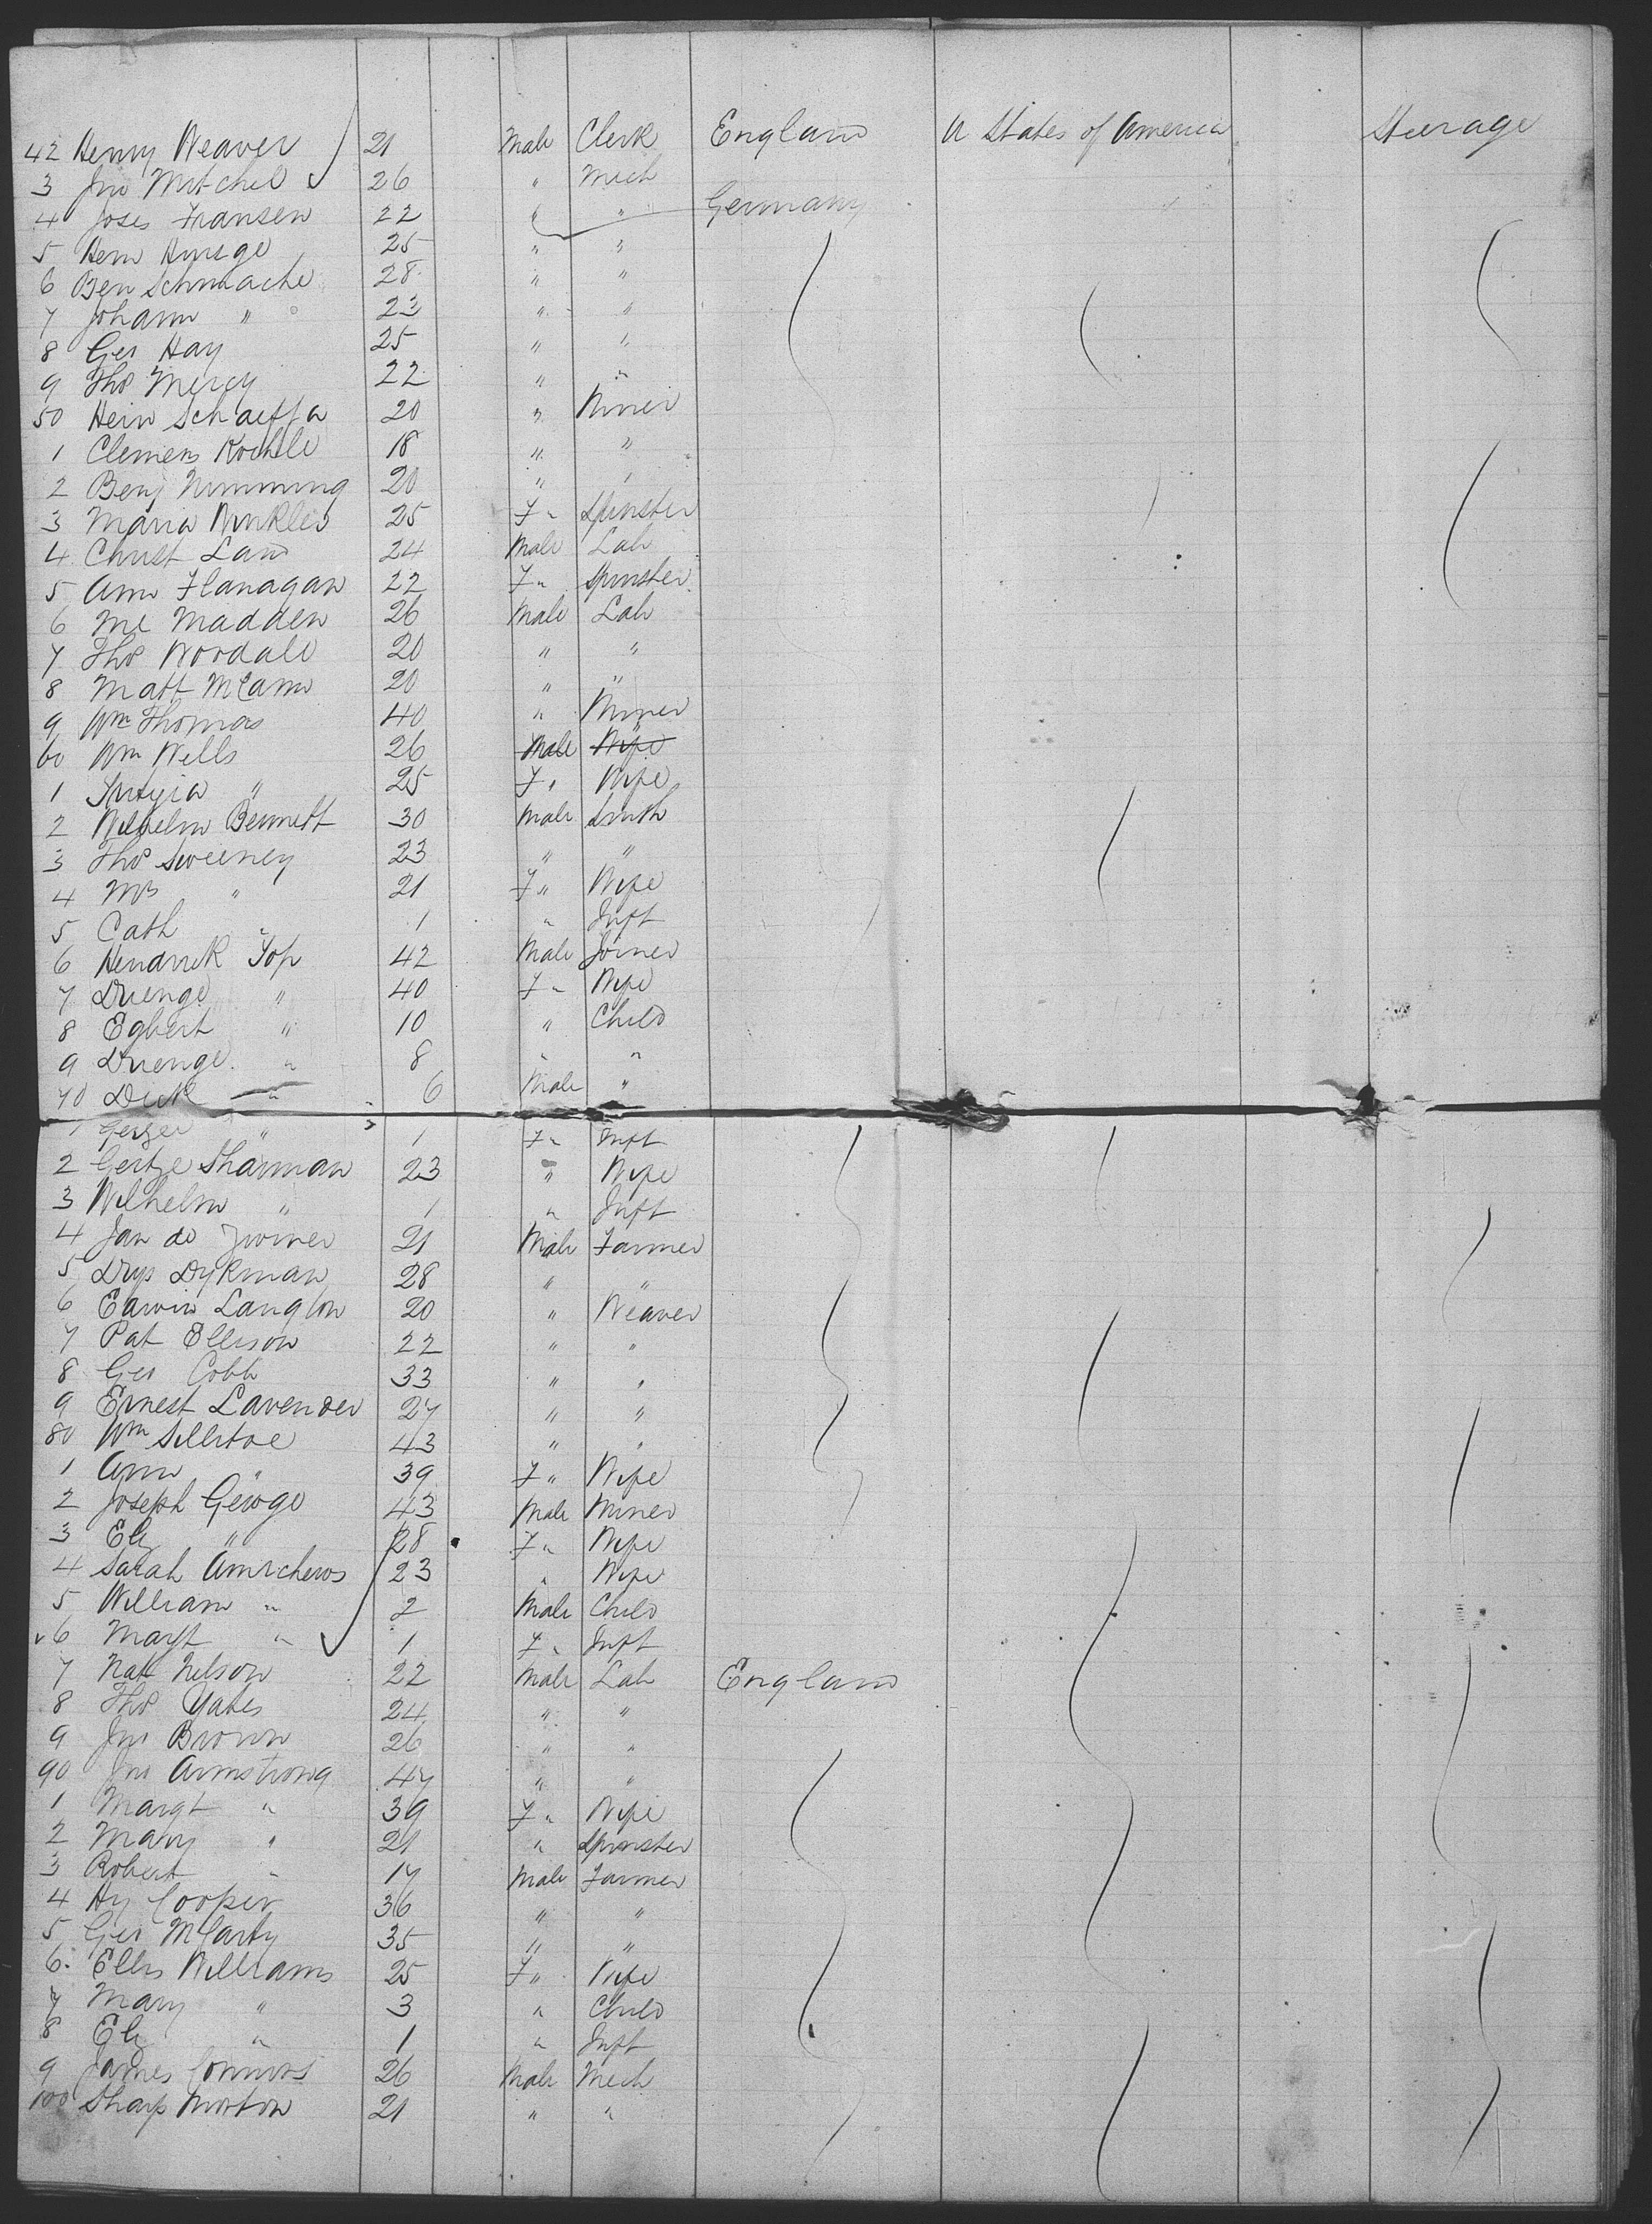 42 Henry Weaver 21 Male Clerk England U States of America Steerage
3 Jno Mitchel 26 " Mech
4 Joses Fransen 22 " " Germany
5 Hern 25 " "
6 Ben Schmache 28 " "
7 Johann " 23 " "
8 Geo Hay 25 " "
9 Thos Mercy 22 " "
50 Hein Schaeffa 20 " Miner
1 Clemens 18 " "
2 Benj 20 " "
3 Maria Winkler 25 F " Spinster
4 Christ Land 24 Male Lab
5 Ann Flanagan 22 F " Spinster
6 Ml Madden 26 Male Lab
7 Thos Woodall 20 " "
8 Matt McCann 20 " "
9 Wm Thomas 40 " Miner
60 Wm Wells 26 Male Wife
1 " 25 F " Wife
2 Wilhelm Bennett 30 Male Smith
3 Thos Sweeney 23 " "
4 Mrs " 21 F " Wife
5 Cath " 1 " Inft
6 Hendrick Top 42 Male Joiner
7 Drienge " 40 F " Wife
8 Egbert " 10 " Child
9 Drienge " 8 " "
70 Dirk " 6 Male "
1 " 1 F " Inft
2 Gertze Sharman 23 " Wife
3 Wilhelm " 1 " Inft
4 Jan de 21 Male Farmer
5 Drys Dykman 28 " "
6 Edwin Langton 20 " Weaver
7 Pat Ellison 22 " "
8 Geo Cobb 33 " "
9 Ernest Lavender 27 " "
80 Wm Sillitoe 43 " "
1 Ann " 39 F " Wife
2 Joseph George 43 Male Miner
3 Eliz " 28 F " Wife
4 Sarah 23 " Wife
5 William " 2 Male Child
6 Margt " 1 F " Inft
7 Nat Nelson 22 Male Lab England
8 Thos Yates 24 " "
9 Jno Brown 26 " "
90 Jno Armstrong 47 " "
1 Margt " 39 F " Wife
2 Mary " 21 " Spinster
3 Robert " 17 Male Farmer
4 Hy Cooper 36 " "
5 Geo McCarty 35 " "
6 Ellis Williams 25 F " Wife
7 Mary " 3 " Child
8 Eliz " 1 " Inft
9 James Connors 26 Male Mech
100 Sharp Morton 21 " "